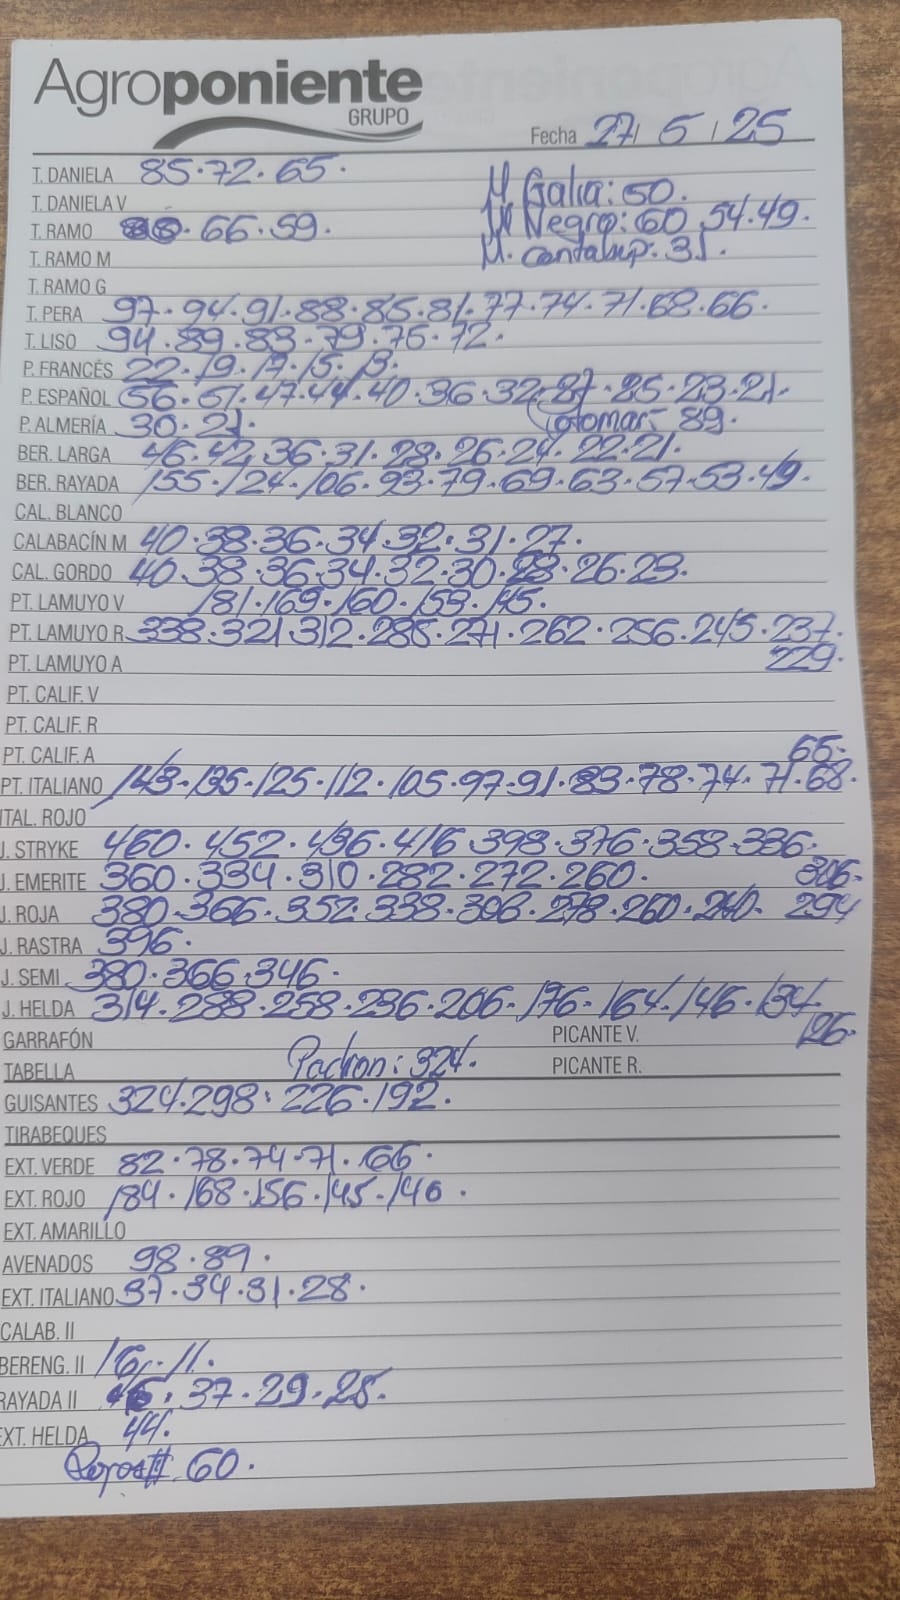 Agroponiente
GRUPO
Fecha 27/ 5 / 25
T. DANIELA 85·72·65·
M Galia: 50.
T. DANIELA V
M Negro: 60 54·49·
T. RAMO 66·59·
M. cantalup: 31.
T. RAMO M
T. RAMO G
T. PERA 97·94·91·88·85·81·77·74·71·68·66·
T. LISO 94·89·83·79·76·72·
P. FRANCÉS 22·19·17·15·13·
P. ESPAÑOL 56·51·47·44·40·36·32·27·25·23·21·
P. ALMERÍA 30·21· 89·
BER. LARGA 46·42·36·31·28·26·24·22·21·
BER. RAYADA 155·124·106·93·79·69·63·57·53·49·
CAL. BLANCO
CALABACÍN M 40·38·36·34·32·31·27·
CAL. GORDO 40·38·36·34·32·30·28·26·23·
PT. LAMUYO V 181·169·160·153·145·
PT. LAMUYO R 338·321·312·285·271·262·256·245·237·
229·
PT. LAMUYO A
PT. CALIF. V
PT. CALIF. R
PT. CALIF. A
66·
PT. ITALIANO 143·135·125·112·105·97·91·83·78·74·71·68·
ITAL. ROJO
J. STRYKE 460·452·436·416·398·376·358·336·
306·
J. EMERITE 360·334·310·282·272·260·
294
J. ROJA 380·366·352·338·306·278·260·240·
J. RASTRA 396·
J. SEMI 380·366·346·
J. HELDA 314·288·258·236·206·176·164·146·134·
126·
GARRAFÓN PICANTE V.
Padron: 324.
TABELLA PICANTE R.
GUISANTES 324·298·226·192·
TIRABEQUES
EXT. VERDE 82·78·74·71·66·
EXT. ROJO 184·168·156·145·140·
EXT. AMARILLO
AVENADOS 98·89·
EXT. ITALIANO 37·34·31·28·
CALAB. II
BERENG. II 16·11·
RAYADA II 37·29·25·
EXT. HELDA 44·
60·